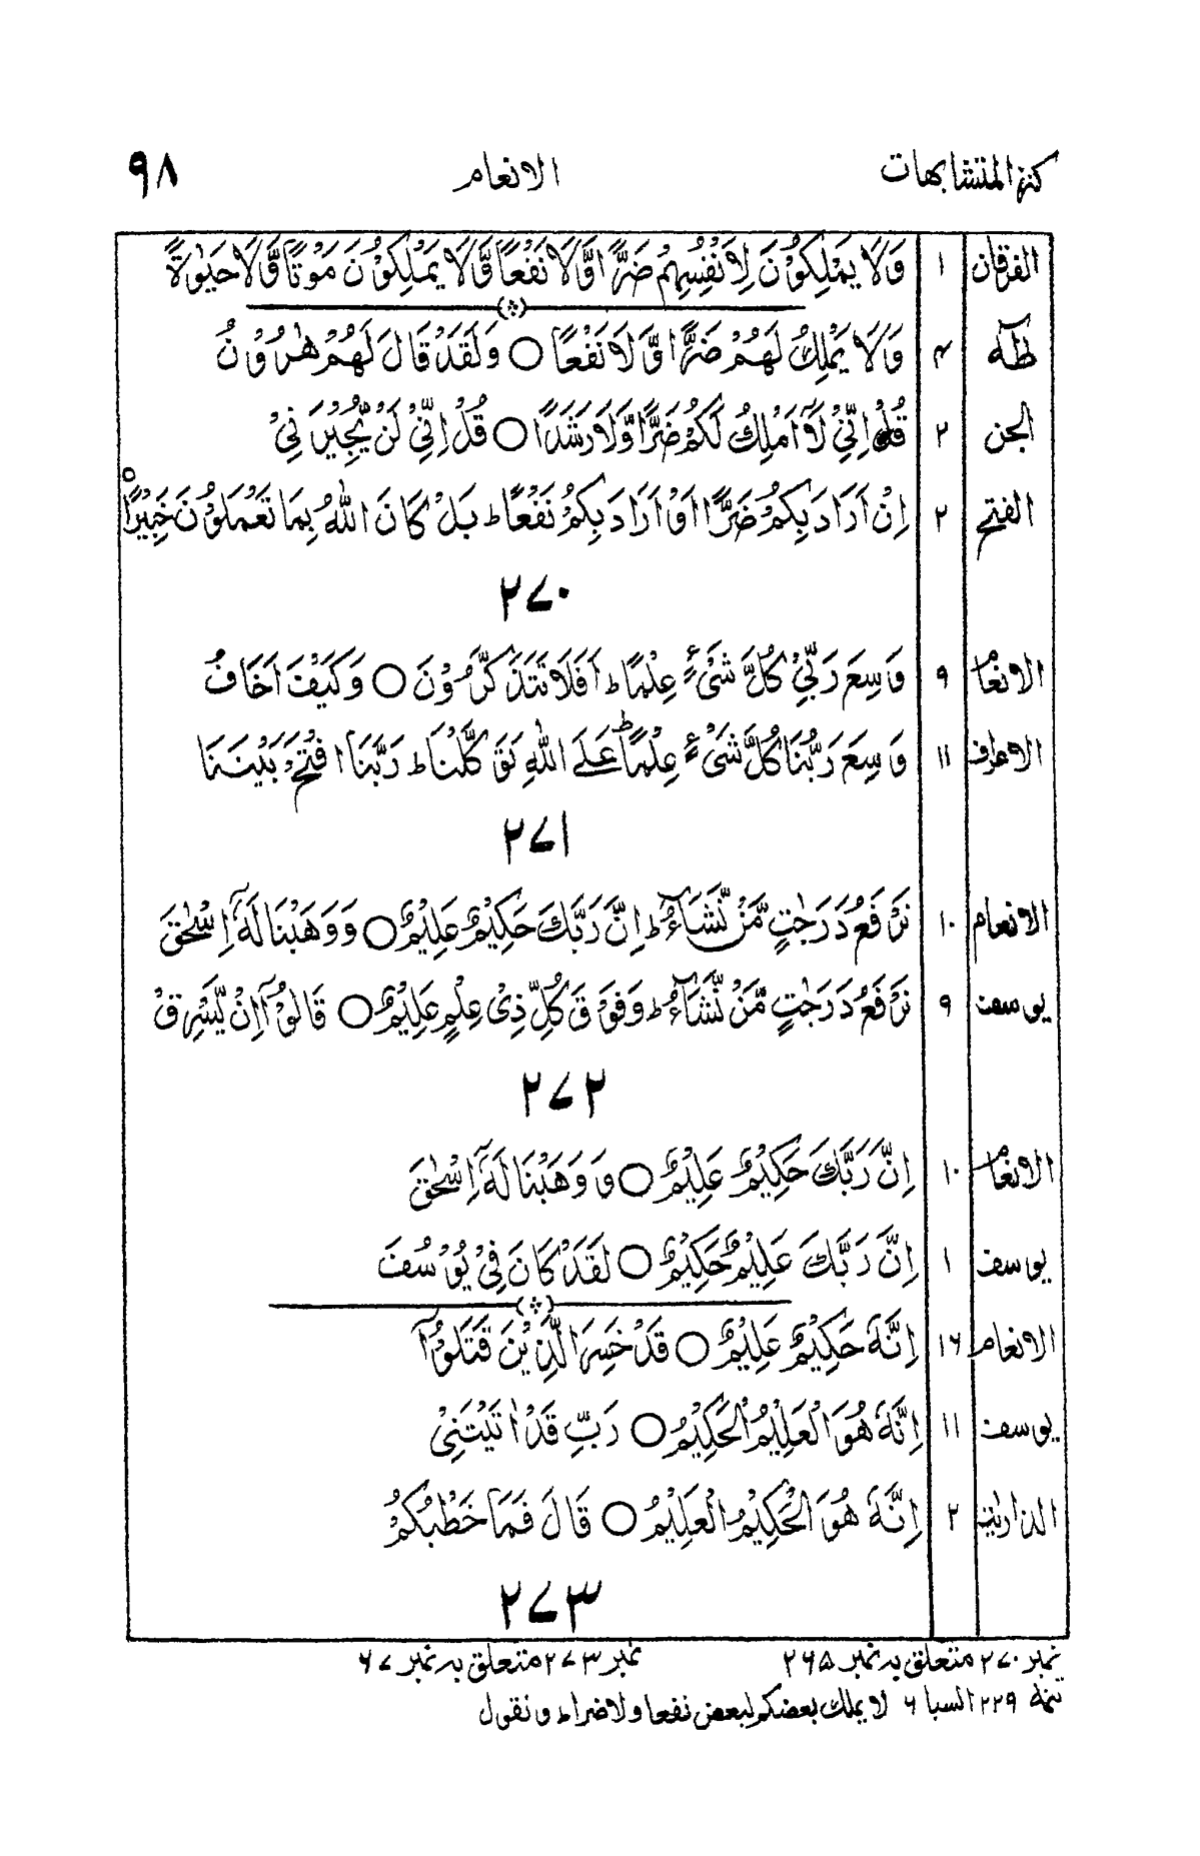 كنز المتشابهات الانعام ٩٨
الفرقان ١ وَلَا يَمْلِكُوْنَ لِاَنْفُسِهِمْ ضَرًّا وَّلَا نَفْعًا وَّلَا يَمْلِكُوْنَ مَوْتًا وَّلَا حَيٰوةً
طٰهٰ ۴ وَلَا يَمْلِكُ لَهُمْ ضَرًّا وَّلَا نَفْعًا ○ وَلَقَدْ قَالَ لَهُمْ هٰرُوْنُ
الجن ٢ قُلْ اِنِّيْ لَآ اَمْلِكُ لَكُمْ ضَرًّا وَّلَا رَشَدًا ○ قُلْ اِنِّيْ لَنْ يُّجِيْرَنِيْ
الفتح ٢ اِنْ اَرَادَ بِكُمْ ضَرًّا اَوْ اَرَادَ بِكُمْ نَفْعًا ط بَلْ كَانَ اللّٰهُ بِمَا تَعْمَلُوْنَ خَبِيْرًا ○
٢٧٠
الانعام ٩ وَسِعَ رَبِّيْ كُلَّ شَيْءٍ عِلْمًا ط اَفَلَا تَتَذَكَّرُوْنَ ○ وَكَيْفَ اَخَافُ
الاعراف ١١ وَسِعَ رَبُّنَا كُلَّ شَيْءٍ عِلْمًا ط عَلَى اللّٰهِ تَوَكَّلْنَا ط رَبَّنَا افْتَحْ بَيْنَنَا
٢٧١
الانعام ١٠ نَرْفَعُ دَرَجٰتٍ مَّنْ نَّشَآءُ ط اِنَّ رَبَّكَ حَكِيْمٌ عَلِيْمٌ ○ وَوَهَبْنَا لَهٗٓ اِسْحٰقَ
يوسف ٩ نَرْفَعُ دَرَجٰتٍ مَّنْ نَّشَآءُ ط وَفَوْقَ كُلِّ ذِيْ عِلْمٍ عَلِيْمٌ ○ قَالُوْٓا اِنْ يَّسْرِقْ
٢٧٢
الانعام ١٠ اِنَّ رَبَّكَ حَكِيْمٌ عَلِيْمٌ ○ وَوَهَبْنَا لَهٗٓ اِسْحٰقَ
يوسف ١ اِنَّ رَبَّكَ عَلِيْمٌ حَكِيْمٌ ○ لَقَدْ كَانَ فِيْ يُوْسُفَ
الانعام ١٦ اِنَّهٗ حَكِيْمٌ عَلِيْمٌ ○ قَدْ خَسِرَ الَّذِيْنَ قَتَلُوْٓا
يوسف ١١ اِنَّهٗ هُوَ الْعَلِيْمُ الْحَكِيْمُ ○ رَبِّ قَدْ اٰتَيْتَنِيْ
الذاريٰت ٢ اِنَّهٗ هُوَ الْحَكِيْمُ الْعَلِيْمُ ○ قَالَ فَمَا خَطْبُكُمْ
٢٧٣
نمبر ٢٧٠ متعلق به نمبر ٢٦٥ نمبر ٢٧٣ متعلق به نمبر ٦٧
تتمه ٢٢٩ السبا ٦ لا يملك بعضكم لبعض نفعا ولا ضرا ط ونقول